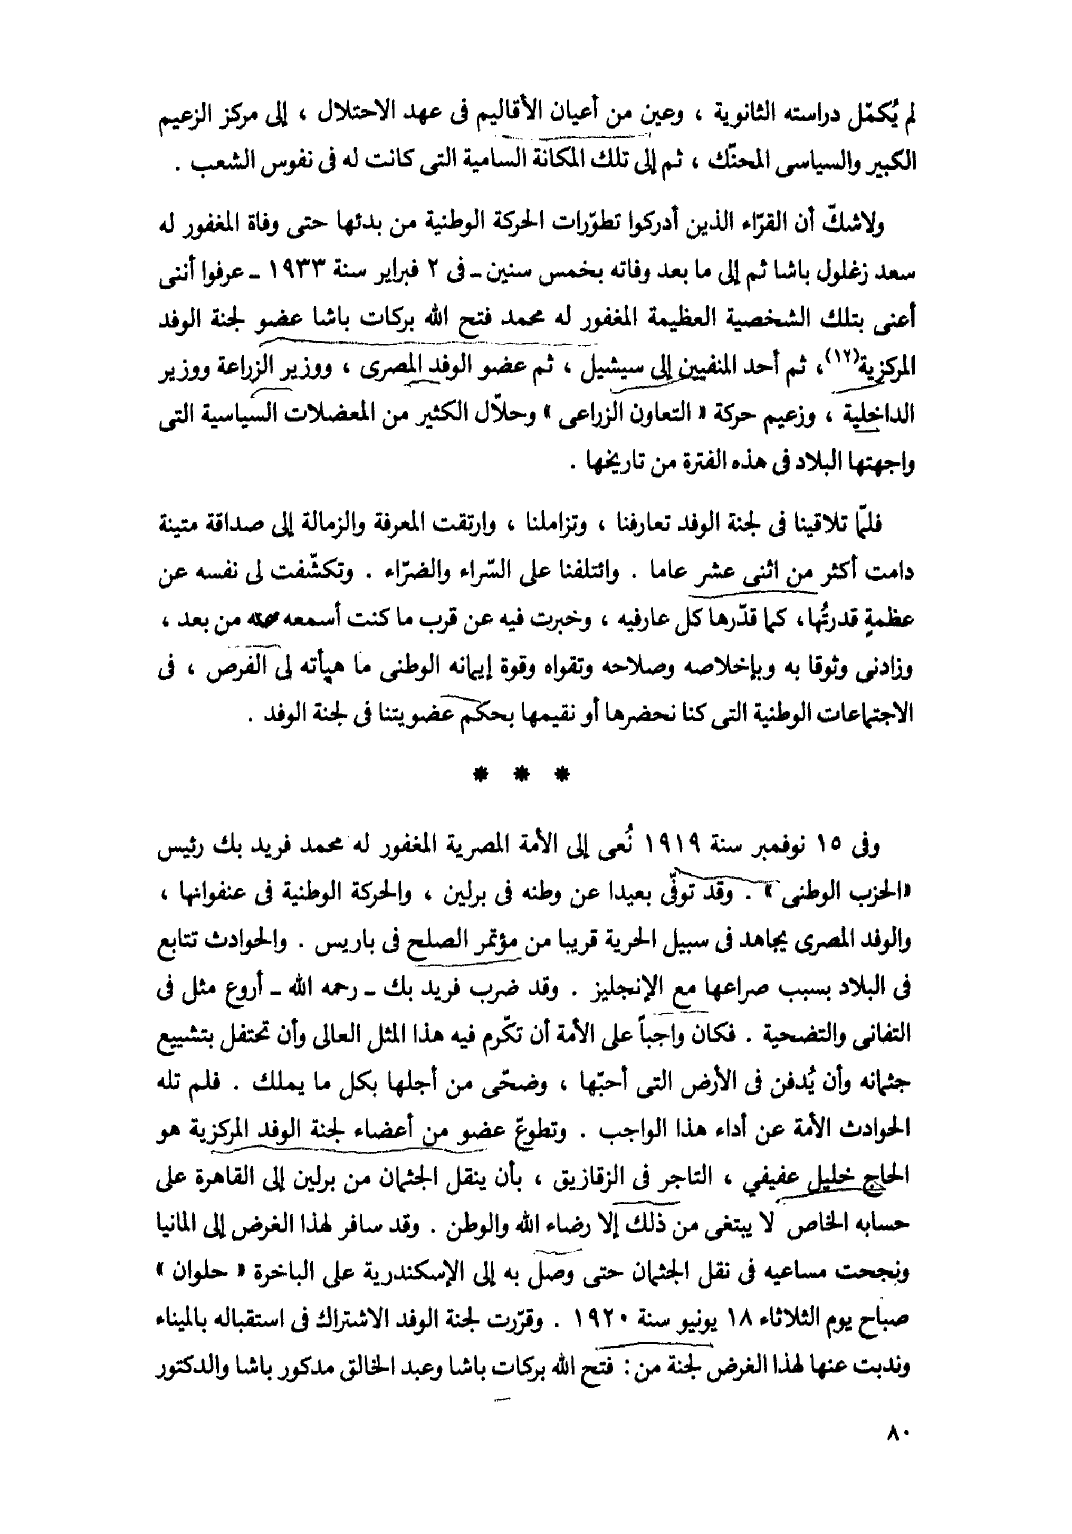 لم يُكمّل دراسته الثانوية ، وعين من أعيان الأقاليم فى عهد الاحتلال ، إلى مركز الزعيم
الكبير والسياسى المحنّك ، ثم إلى تلك المكانة السامية التى كانت له فى نفوس الشعب .
ولاشكّ أن القرّاء الذين أدركوا تطوّرات الحركة الوطنية من بدئها حتى وفاة المغفور له
سعد زغلول باشا ثم إلى ما بعد وفاته بخمس سنين ـ فى ٢ فبراير سنة ١٩٣٣ ـ عرفوا أننى
أعنى بتلك الشخصية العظيمة المغفور له محمد فتح الله بركات باشا عضو لجنة الوفد
المركزية(١٢)، ثم أحد المنفيين إلى سيشيل ، ثم عضو الوفد المصرى ، ووزير الزراعة ووزير
الداخلية ، وزعيم حركة « التعاون الزراعى » وحلاّل الكثير من المعضلات السياسية التى
واجهتها البلاد فى هذه الفترة من تاريخها .
فلمّا تلاقينا فى لجنة الوفد تعارفنا ، وتزاملنا ، وارتقت المعرفة والزمالة إلى صداقة متينة
دامت أكثر من اثنى عشر عاما . وائتلفنا على السّراء والضرّاء . وتكشّفت لى نفسه عن
عظمةٍ قدرتُها، كما قدّرها كل عارفيه ، وخبرت فيه عن قرب ما كنت أسمعه عنه من بعد ،
وزادنى وثوقا به وبإخلاصه وصلاحه وتقواه وقوة إيمانه الوطنى ما هيأته لى الفرص ، فى
الاجتماعات الوطنية التى كنا نحضرها أو نقيمها بحكم عضويتنا فى لجنة الوفد .
* * *
وفى ١٥ نوفمبر سنة ١٩١٩ نُعى إلى الأمة المصرية المغفور له محمد فريد بك رئيس
«الحزب الوطنى» . وقد توفّى بعيدا عن وطنه فى برلين ، والحركة الوطنية فى عنفوانها ،
والوفد المصرى يجاهد فى سبيل الحرية قريبا من مؤتمر الصلح فى باريس . والحوادث تتابع
فى البلاد بسبب صراعها مع الإنجليز . وقد ضرب فريد بك ـ رحمه الله ـ أروع مثل فى
التفانى والتضحية . فكان واجباً على الأمة أن تكّرم فيه هذا المثل العالى وأن تحتفل بتشييع
جثمانه وأن يُدفن فى الأرض التى أحبّها ، وضحّى من أجلها بكل ما يملك . فلم تله
الحوادث الأمة عن أداء هذا الواجب . وتطوعّ عضو من أعضاء لجنة الوفد المركزية هو
الحاج خليل عفيفي ، التاجر فى الزقازيق ، بأن ينقل الجثمان من برلين إلى القاهرة على
حسابه الخاص لا يبتغى من ذلك إلا رضاء الله والوطن . وقد سافر لهذا الغرض إلى المانيا
ونجحت مساعيه فى نقل الجثمان حتى وصل به إلى الإسكندرية على الباخرة « حلوان »
صباح يوم الثلاثاء ١٨ يونيو سنة ١٩٢٠ . وقرّرت لجنة الوفد الاشتراك فى استقباله بالميناء
وندبت عنها لهذا الغرض لجنة من : فتح الله بركات باشا وعبد الخالق مدكور باشا والدكتور
٨٠